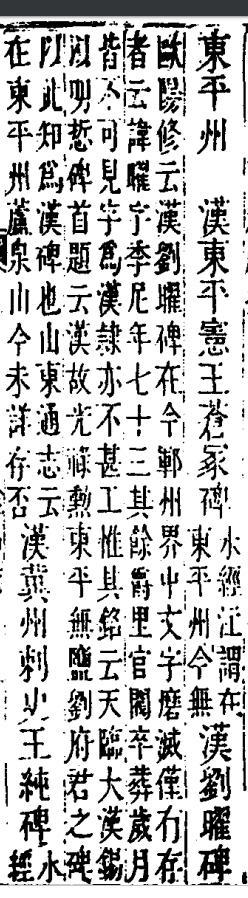 東平州　漢東平憲王蒼冢碑
水經注謂在
東平州今無
漢劉曜碑
歐陽修云漢劉曜碑在今鄆州界中文字磨滅僅有存
者云諱曜字季尼年七十三其餘爵里官閥卒葬歲月
皆不可見字為漢隸亦不甚工惟其銘云天臨大漢錫
以明悊碑首題云漢故光祿勳東平無鹽劉府君之碑
以此知為漢碑也山東通志云
在東平州蘆泉山今未詳存否
漢冀州刺史王純碑
水
經